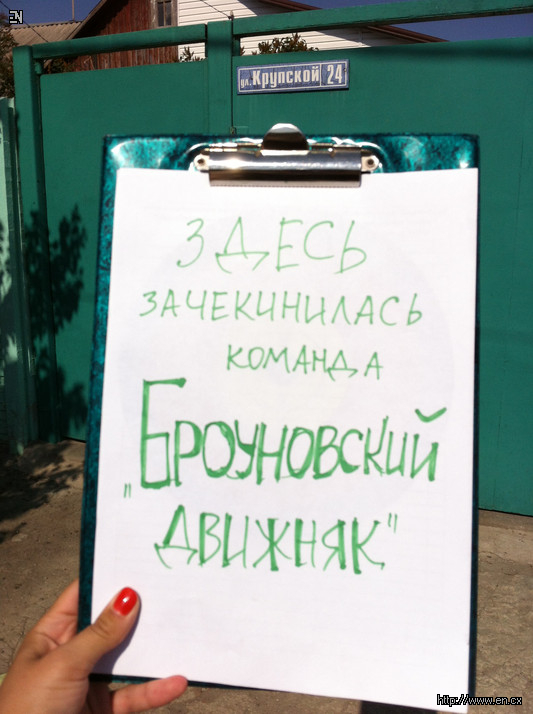 EN
ул. Крупской 24
ЗДЕСЬ
ЗАЧЕКИНИЛАСЬ
КОМАНДА
„БРОУНОВСКИЙ
ДВИЖНЯК"
http://www.en.cx